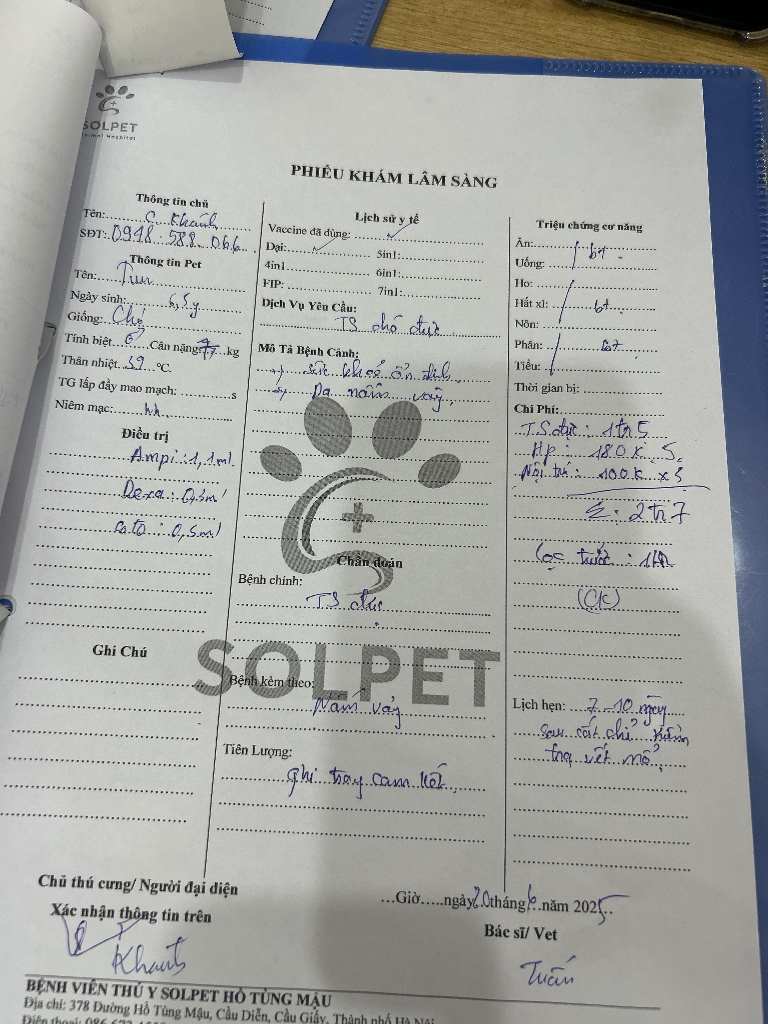 SOLPET
PHIẾU KHÁM LÂM SÀNG
Thông tin chủ
Tên: C Khánh
SĐT: 0948.588.066
Thông tin Pet
Tên: Tun
Ngày sinh: 6,5y
Giống: Chó
Tính biệt Cân nặng kg
Thân nhiệt 39 °C
TG lấp đầy mao mạch: s
Niêm mạc: hh
Điều trị
Ampi: 1,1ml
Dexa: 0,3ml
cato: 0,5ml
Ghi Chú
Lịch sử y tế
Vaccine đã dùng: ✓
Dại: ✓ 5in1:
4in1 6in1:
FIP: 7in1:
Dịch Vụ Yêu Cầu:
TS chó đực
Mô Tả Bệnh Cảnh:
sức khoẻ ổn định
Da nấm vảy
Chẩn đoán
Bệnh chính:
TS đực
SOLPET
Bệnh kèm theo:
Nấm vảy
Tiên Lượng:
ghi trong cam kết
Triệu chứng cơ năng
Ăn: bt
Uống:
Ho:
Hắt xì: bt
Nôn:
Phân: bt
Tiểu:
Thời gian bị:
Chi Phí:
TS đực: 1tr5
Hp: 180K
Nội trú: 100K x5
Σ: 2tr7
cọc trước: 1tr
(CK)
Lịch hẹn: 7-10 ngày
sau cắt chỉ kiểm
tra vết mổ
Chủ thú cưng/ Người đại diện
Xác nhận thông tin trên
Khanh
...Giờ.....ngày 20 tháng 6 năm 2025
Bác sĩ/ Vet
Tuấn
BỆNH VIỆN THÚ Y SOLPET HỒ TÙNG MẬU
Địa chỉ: 378 Đường Hồ Tùng Mậu, Cầu Diễn, Cầu Giấy, Thành phố HÀ NỘI
Điện thoại: 086 673